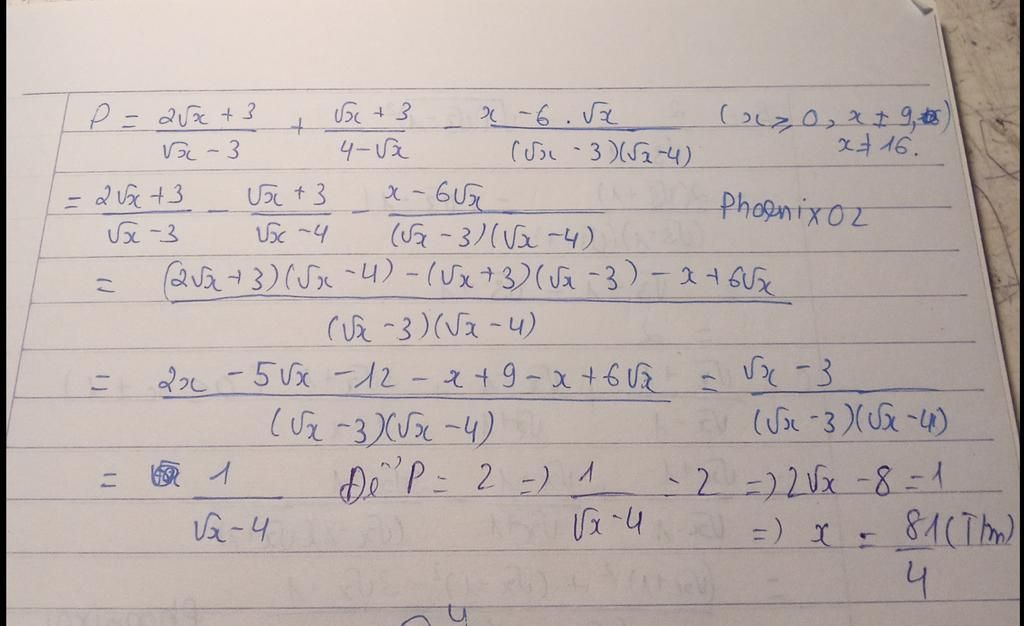 P = \frac{2√x + 3}{√x - 3} + \frac{√x + 3}{4 - √x} - \frac{x - 6 . √x}{(√x - 3)(√x - 4)} (x ≥ 0, x ≠ 9,
x ≠ 16.
= \frac{2√x + 3}{√x - 3} - \frac{√x + 3}{√x - 4} - \frac{x - 6√x}{(√x - 3)(√x - 4)} Phoenix02
= \frac{(2√x + 3)(√x - 4) - (√x + 3)(√x - 3) - x + 6√x}{(√x - 3)(√x - 4)}
= \frac{2x - 5√x - 12 - x + 9 - x + 6√x}{(√x - 3)(√x - 4)} = \frac{√x - 3}{(√x - 3)(√x - 4)}
= \frac{1}{√x - 4} Để P = 2 => \frac{1}{√x - 4} = 2 => 2√x - 8 = 1
=> x = \frac{81}{4} (T/m)